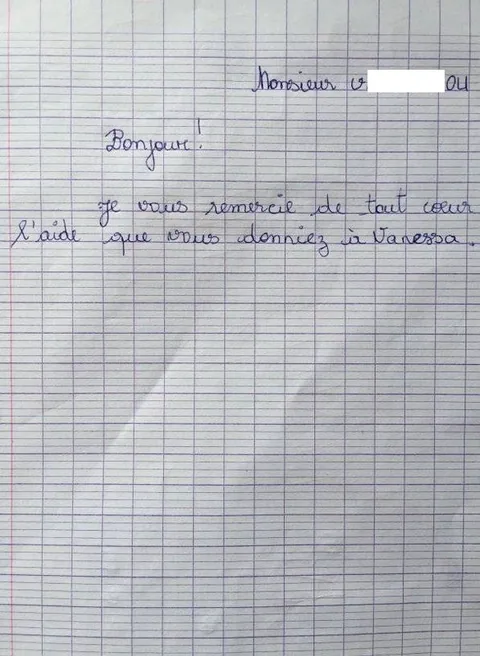 Monsieur v OU
Bonjour!
Je vous remercie de tout cœur
l'aide que vous donniez à Vanessa.